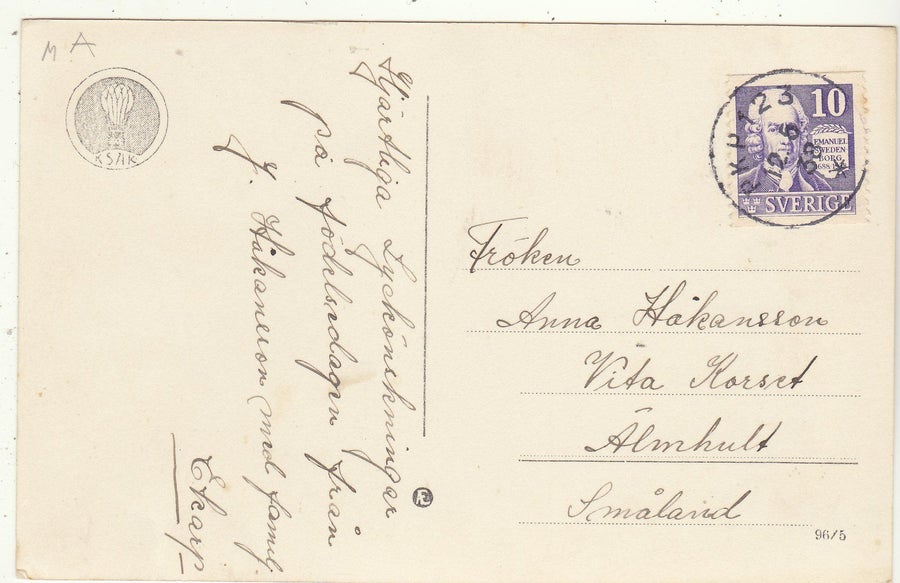 M A
KSAK
Hjärtliga Lyckönskningar
på födelsedagen från
J. Håkansson med familj.
Ekarp
PKP 123
12.6.38
10
EMANUEL
SWEDEN-
BORG
SVERIGE
Fröken
Anna Håkansson
Vita Korset
Älmhult
Småland
96/5